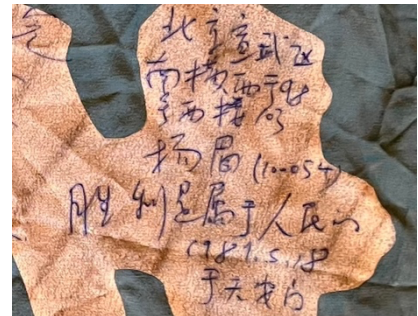 北京宣武区
南横西
号西楼
杨眉 (100054)
胜利是属于人民的
1989.5.18
于天安门